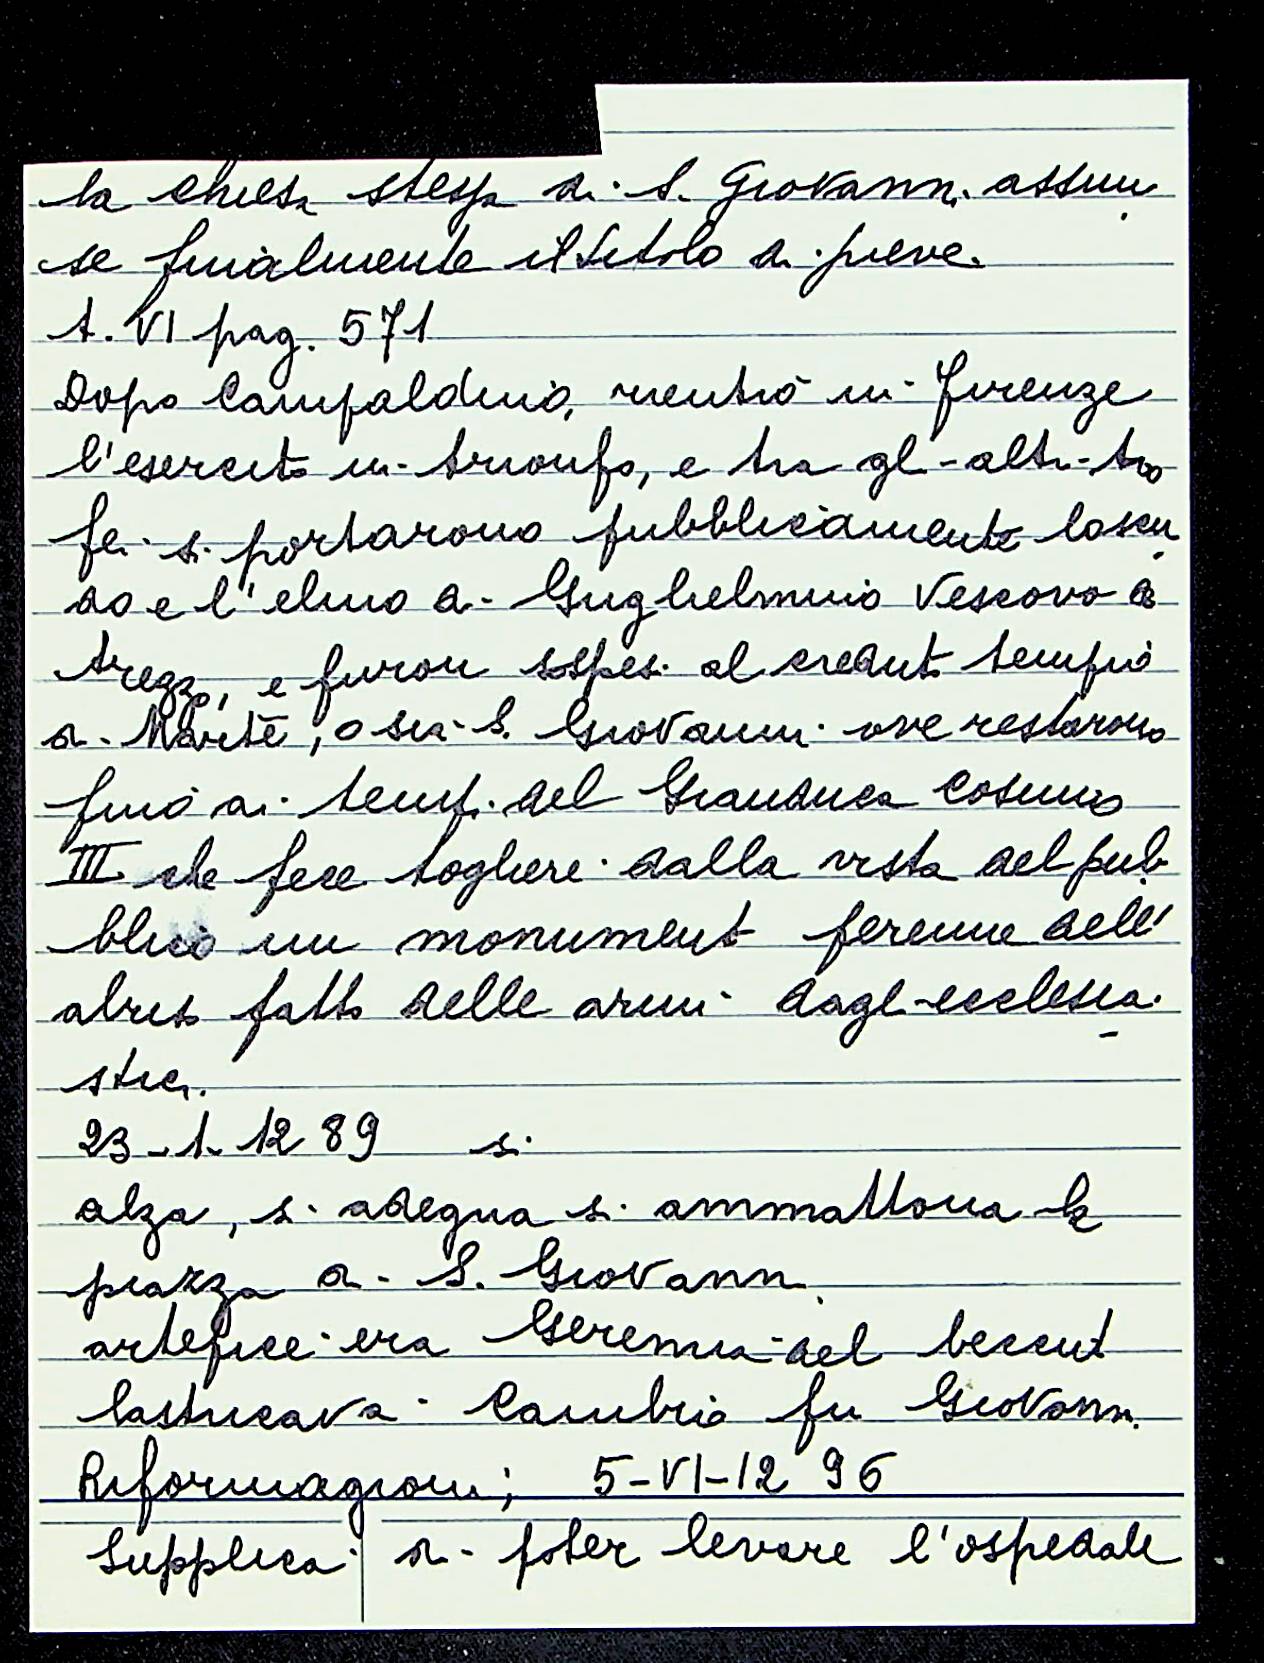 la chiesa stessa di S. Giovanni assun
se finalmente il titolo di pieve.
t. VI pag. 571
Dopo Campaldino, rientrò in Firenze
l'esercito in trionfo, e tra gli altri tro
fei si portarono pubblicamente lo scu
do e l'elmo di Guglielmino Vescovo di
Arezzo, e furon sospesi al creduto tempio
di Marte, o sia S. Giovanni ove restarono
fino ai tempi del Granduca Cosimo
III che fece togliere dalla vista del pub
blico un monumento perenne dell'
abuso fatto delle armi dagli ecclesia
stici.
23-1-1289 si
alza, si adegua si ammattona la
piazza di S. Giovanni
artefice era Geremia del beccuto
lastricava Cambio fu Giovanni
Riformagioni; 5-VI-1296
Supplica di poter levare l'ospedale